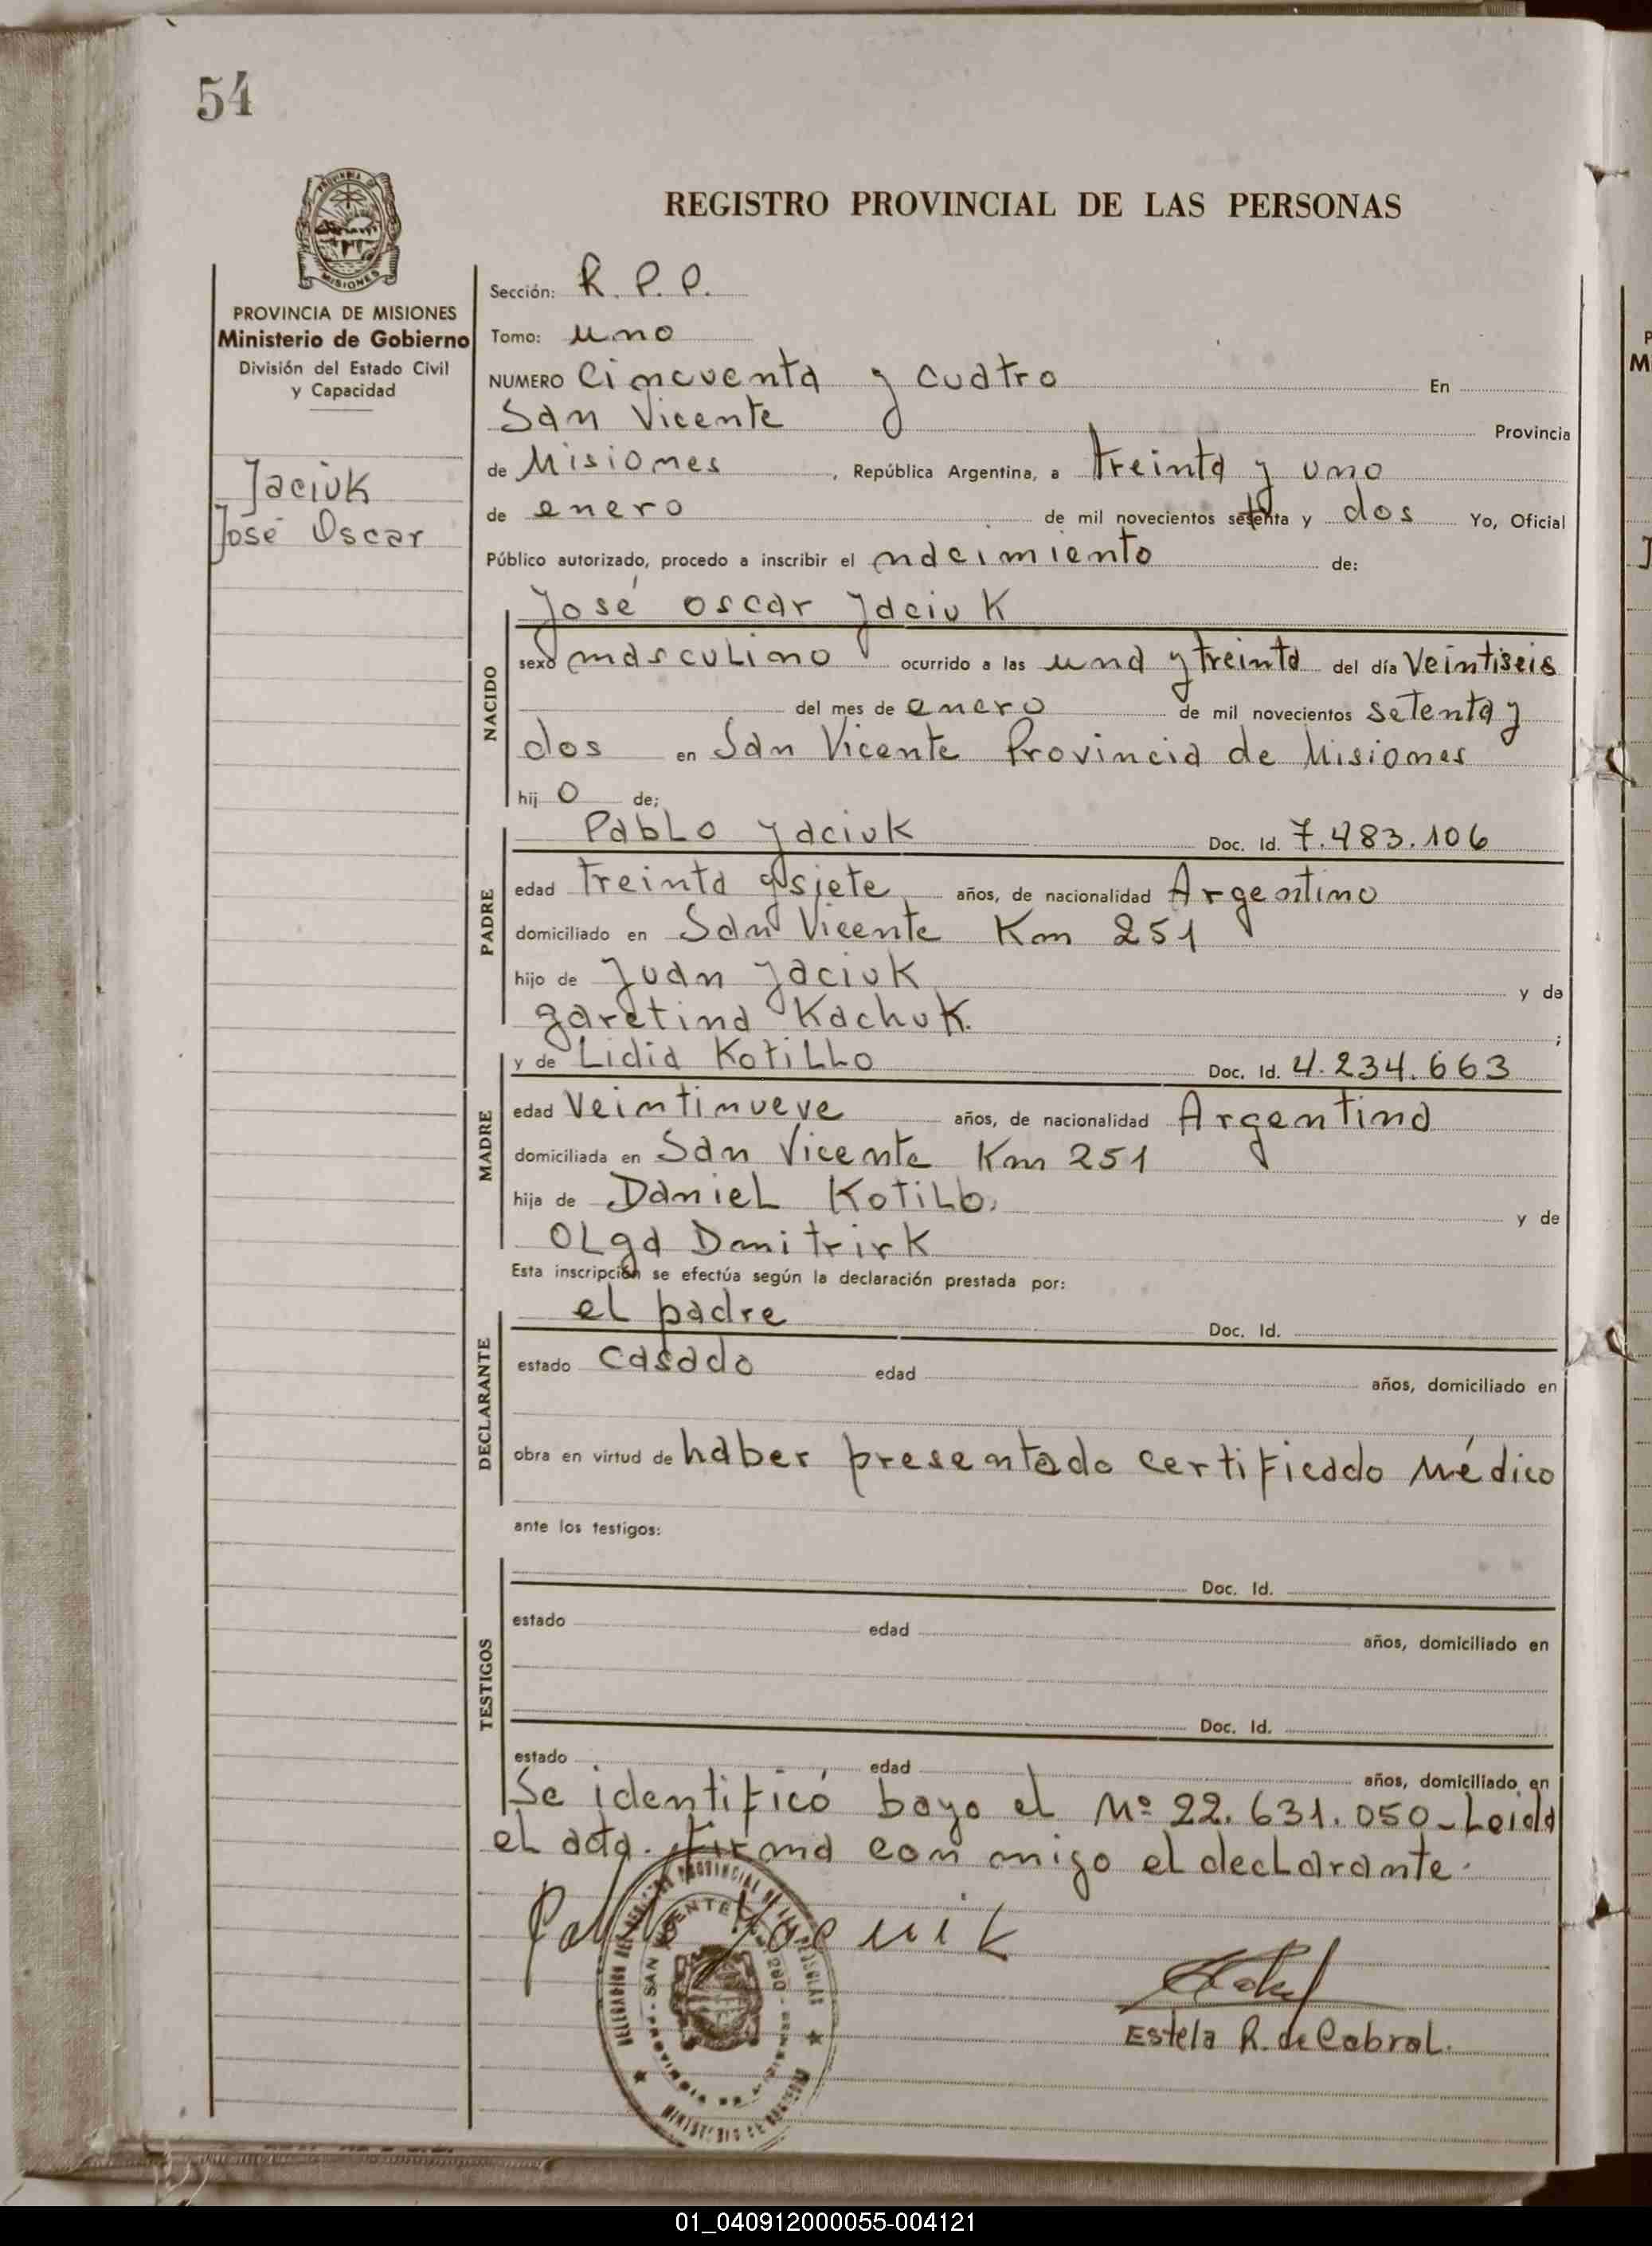 54
PROVINCIA DE
MISIONES
REGISTRO PROVINCIAL DE LAS PERSONAS
PROVINCIA DE MISIONES
Ministerio de Gobierno
División del Estado Civil
y Capacidad
Jaciuk
José Oscar
Sección: R. P. P.
Tomo: uno
NUMERO Cincuenta y cuatro En
San Vicente Provincia
de Misiones, República Argentina, a treinta y uno
de enero de mil novecientos setenta y dos Yo, Oficial
Público autorizado, procedo a inscribir el nacimiento de:
José Oscar Jaciuk
NACIDO
sexo masculino ocurrido a las una y treinta del día Veintiseis
del mes de enero de mil novecientos setenta y
dos en San Vicente Provincia de Misiones
hijo de;
Pablo Jaciuk Doc. Id. 7.483.106
PADRE
edad treinta y siete años, de nacionalidad Argentino
domiciliado en San Vicente Km 251
hijo de Juan Jaciuk y de
garetina Kachuk. ;
y de Lidia Kotillo Doc. Id. 4.234.663
MADRE
edad Veintinueve años, de nacionalidad Argentina
domiciliada en San Vicente Km 251
hija de Daniel Kotillo. y de
Olga Dmitrirk
Esta inscripción se efectúa según la declaración prestada por:
el padre Doc. Id.
DECLARANTE
estado casado edad años, domiciliado en
obra en virtud de haber presentado certificado Médico
ante los testigos:
Doc. Id.
TESTIGOS
estado edad años, domiciliado en
Doc. Id.
estado edad años, domiciliado en
Se identificó bayo el Nº 22.631.050 - Leida
el acta. Firma con migo el declarante.
SAN VICENTE
Estela R. de Cabral.
01_040912000055-004121